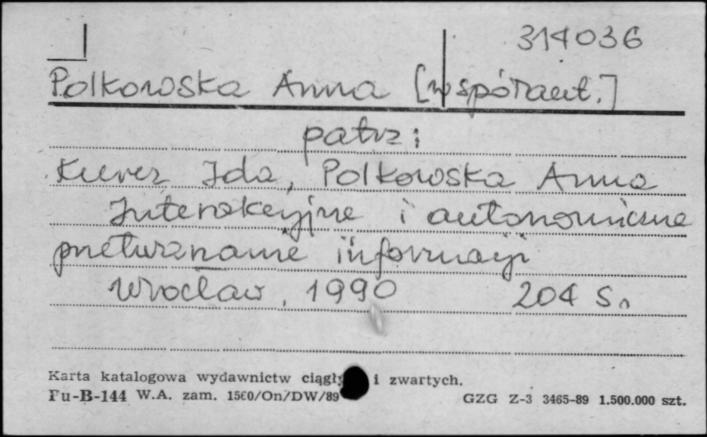 314036
Polkowska Anna [współaut.]
patrz:
Kurcz Ida, Polkowska Anna
Interakcyjne i autonomiczne
przetwarzanie informacji
Wrocław, 1990 204 s.
Karta katalogowa wydawnictw i zwartych.
Pu-B-144 W.A. zam. 1560/On/DW/89 GZG Z-3 3465-89 1.500.000 szt.